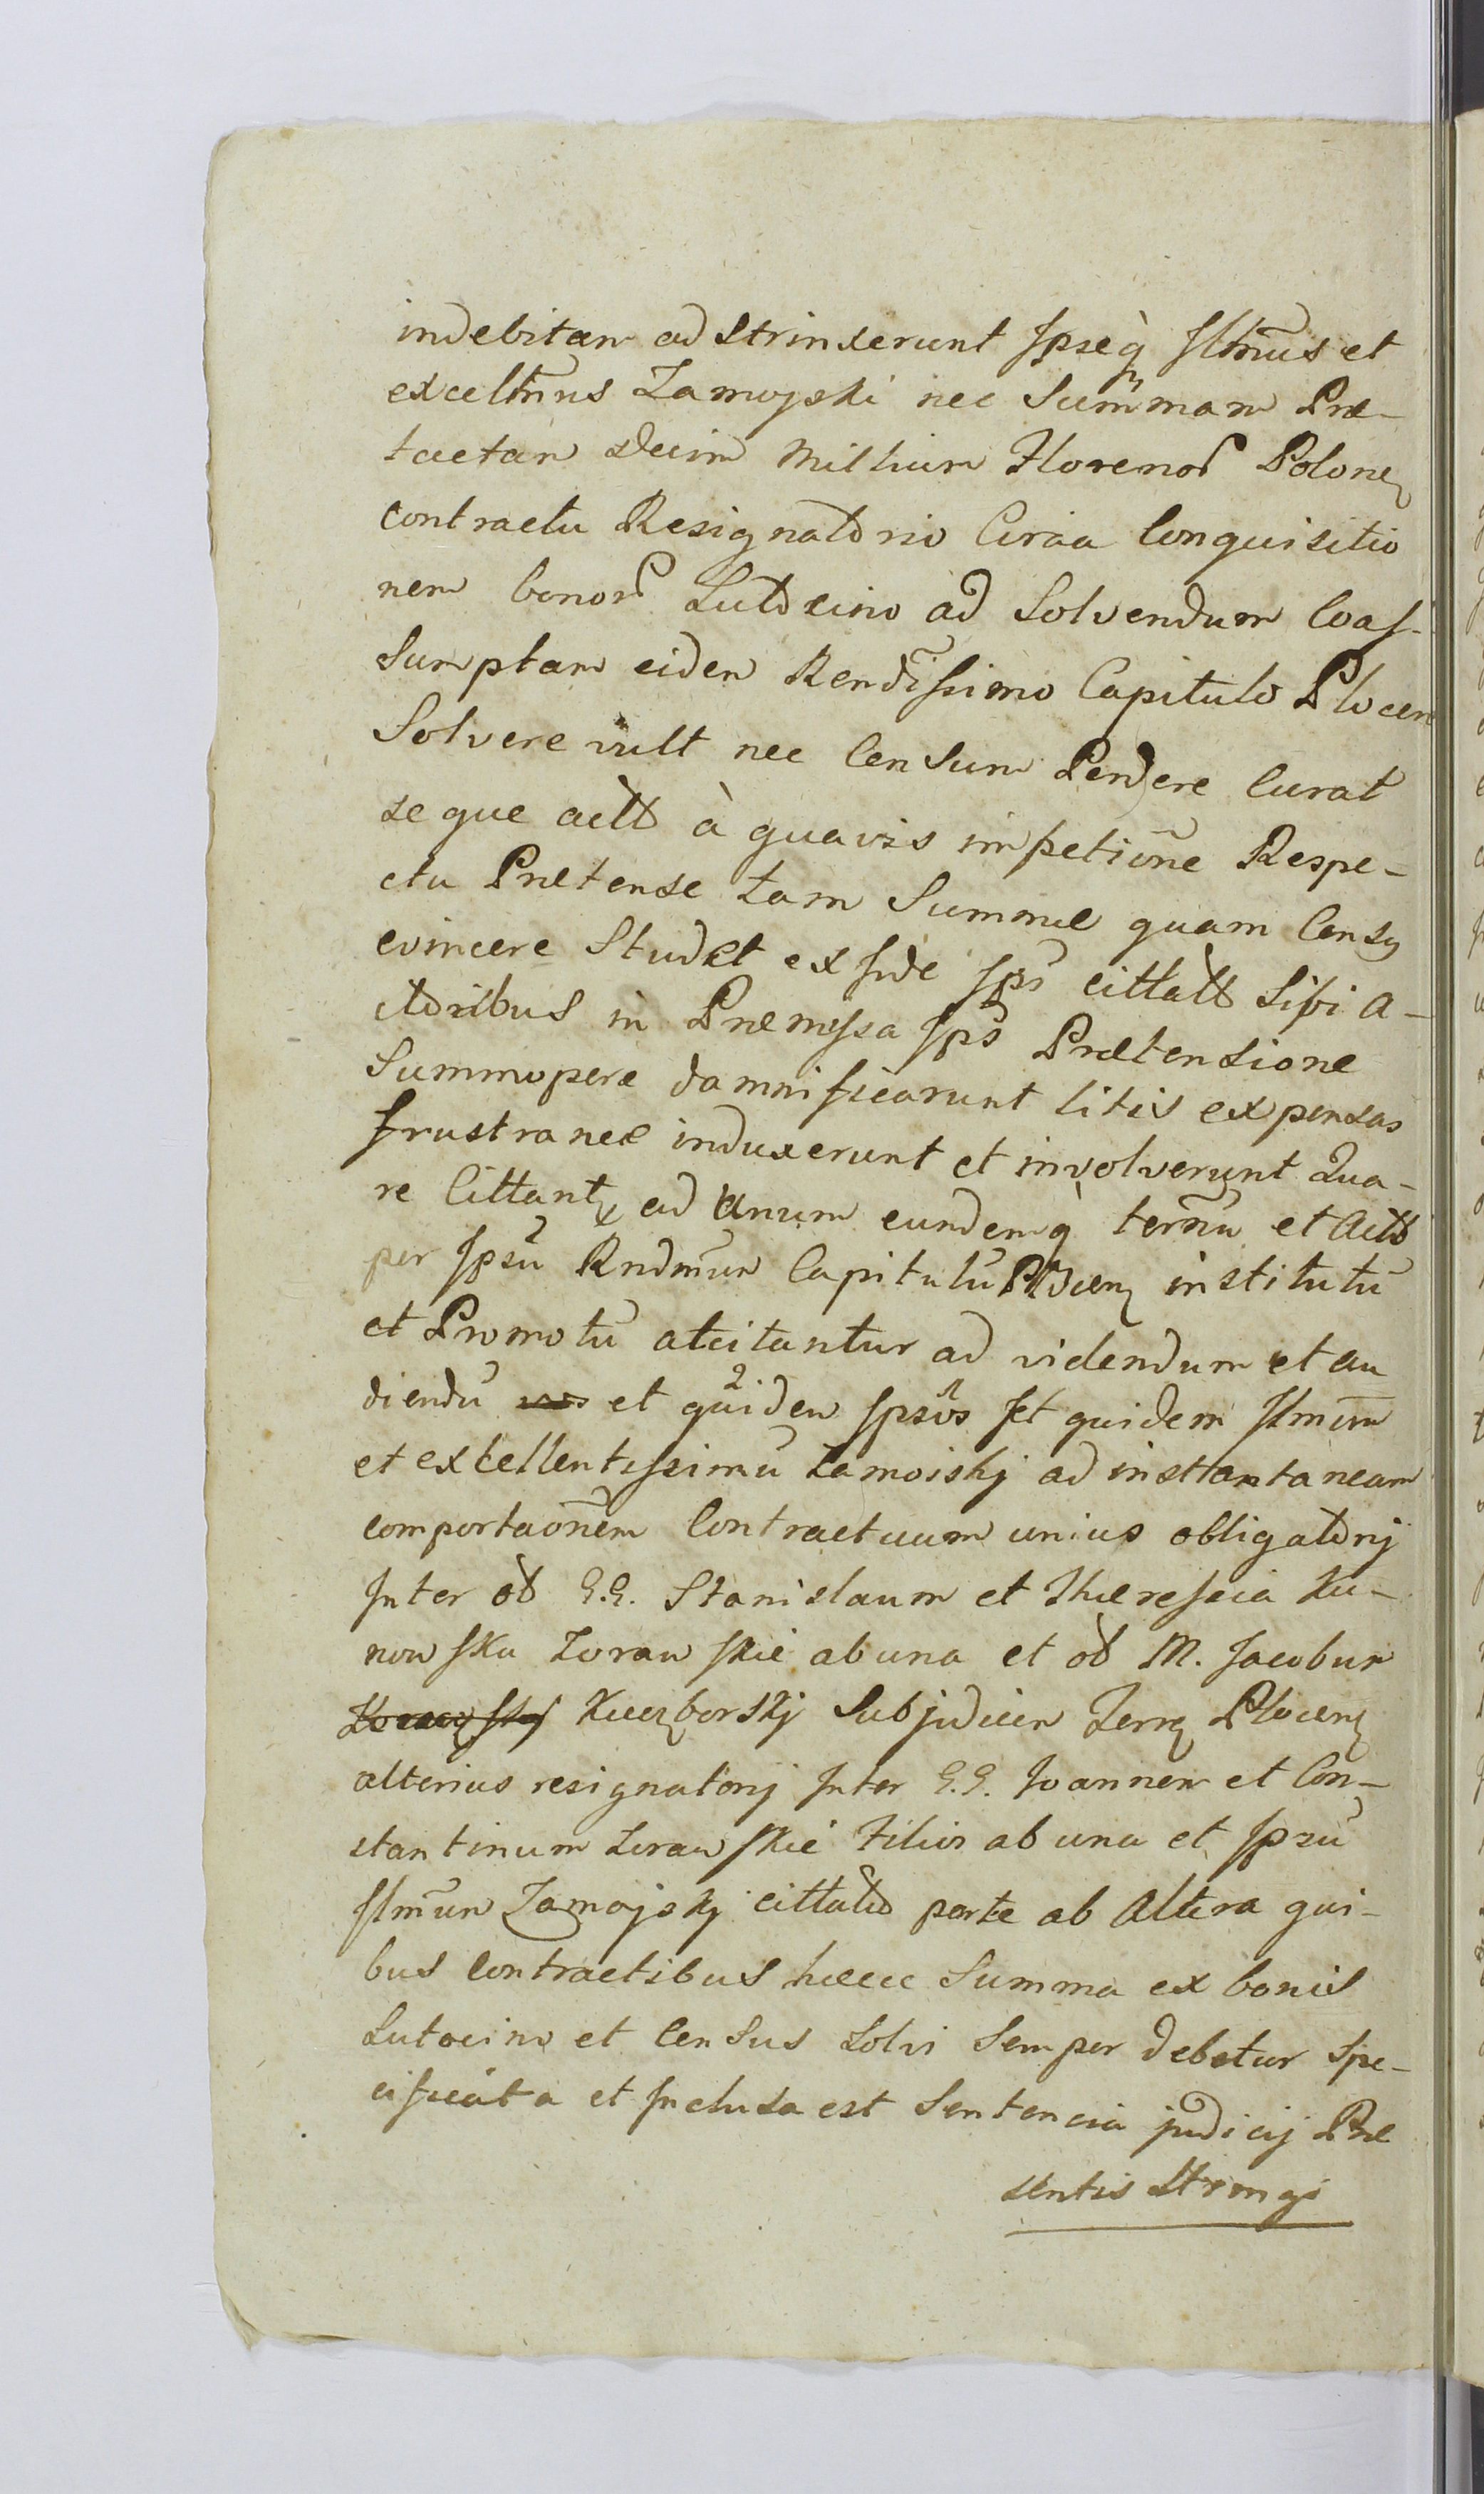 indebitam adstrinxerunt Ipseq̀ Illm̃us et
excellm̃us Zamoyski nec Sum̃mam Præ-
tactam Decim Millium Florenor Polone
contractu Resignatorio Circa Conquisitio
nem bonor Lutocino ad Solvendum Coaſ-
Sumptam eidem Rendiſsimo Capitulo Plocen
Solvere vult nec Censum Pendere Curat
seque actt à quavis impetiõne Respe-
ctu Prætense tam Summæ quam Censq
evincere Studet exinde Ips̃ cittatt Sibi A-
ctoribus in Præmiſsa Ips̃ Prætensione
Summopere damnificarunt litis expensas
frustraneè induxerunt et involverunt Qua-
re Cittant ad unum eundemq̀ term̃nu et Actt
per Ipsũ Rndm̃um Capitulũ Plocen institutũ
et Promotũ atcitantur ad videndum et au
diendũ et quidem Ipsos Et quidem Illmũm
et excellentiſsimũ Zamoiskj ad instantaneam
comportaõnem Contractuum unius obligatorij
Inter od G.G. Stanislaum et Theresia Ku-
nowska Zorawskie ab una et od M. Jacobum
Kuczborskj Subjudicem Terrę Plocen
alterius resignatorij Inter G.G. Joannem et Con-
stantinum Zorawskie Filios ab una et Ipsũ
Illm̃um Zamojskj cittatũ parte ab Altera qui-
bus Contractibus hæcce Summa ex bonis
Lutocino et Census Solvi Semper debetur Spe-
cificata et Inclusa est Sentencia judicij Præ
sentis Stringi